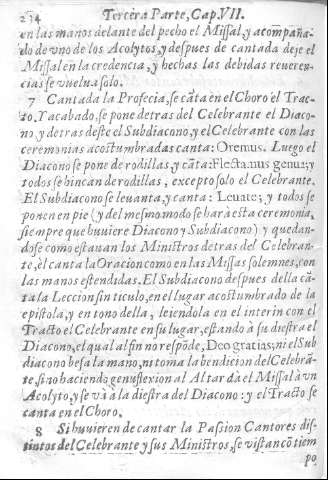 234 Tercera Parte, Cap. VII.
en las manos delante del pecho el Missal, y acompaña-
do de vno de los Acolytos, y despues de cantada deje el
Missal en la credencia, y hechas las debidas reueren-
cias se vuelua solo.
7 Cantada la Profecia, se cãta en el Choro el Trac-
to. Y acabado, se pone detras del Celebrante el Diaco-
no, y detras deste el Subdiacono, y el Celebrante con las
ceremonias acostumbradas canta: Oremus. Luego el
Diacono se pone de rodillas, y cãta: Flectamus genua; y
todos se hincan de rodillas, excepto solo el Celebrante.
El Subdiacono se leuanta, y canta: Leuate; y todos se
ponen en pie (y del mesmo modo se hará esta ceremonia,
siempre que huuiere Diacono y Subdiacono) y quedan-
dose como estauan los Ministros detras del Celebran-
te, èl canta la Oracion como en las Missas solemnes, con
las manos estendidas. El Subdiacono despues della cã-
ta la Leccion sin titulo, en el lugar acostumbrado de la
epistola, y en tono della, leiendola en el interin con el
Tracto el Celebrante en su lugar, estãdo à su diestra el
Diacono, el qual al fin no respõde, Deo gratias; ni el Sub
diacono besa la mano, ni toma la bendicion del Celebrã-
te, sino haciendo genuflexion al Altar dá el Missal à vn
Acolyto, y se và à la diestra del Diacono: y el Tracto se
canta en el Choro.
8 Si huuieren de cantar la Passion Cantores dis-
tintos del Celebrante y sus Ministros, se vistan cõ tiem
po